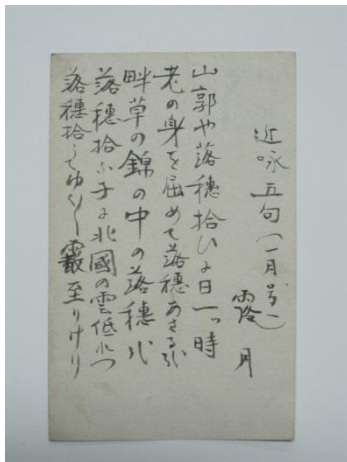 近咏五句（一月号）
露月
山郭や落穂拾ひに日一ッ時
老の身を屈めて落穂あさる哉
畔草の錦の中の落穂哉
落穂拾ふ子に北國の雲低れつ
落穂拾うてゆく 至りけり